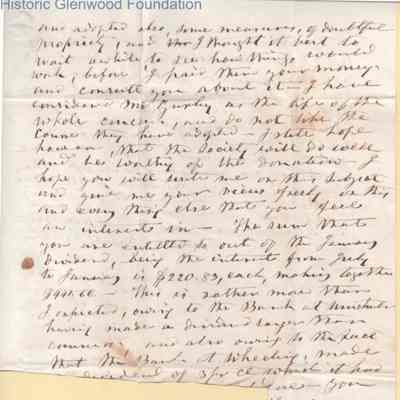 Historic Glenwood Foundation
and adopted also, some measures, of doubtful
propriety, and tho' I thought it best to
wait awhile to see how things would
work, before I paid them your money
and consult you about it — I have
considered Mr Gurley as the life of the
whole concern, and do not like the
course they have adopted — I still hope
however, that the Society will do well
and be worthy of the donation — I
hope you will write me on this subject
and give me your views freely on this
and every thing else that you feel
an interest in — The sum that
you are entitled to out of the January
dividend, being the interest from July
to January is $220.83, each, making together
$441.66 — This is rather more than
I expected, owing to the Bank at
having made a dividend larger than
common, and also owing to the fact
that the Bank at Wheeling, made
dividend of 3 pr ct which it had
done — You